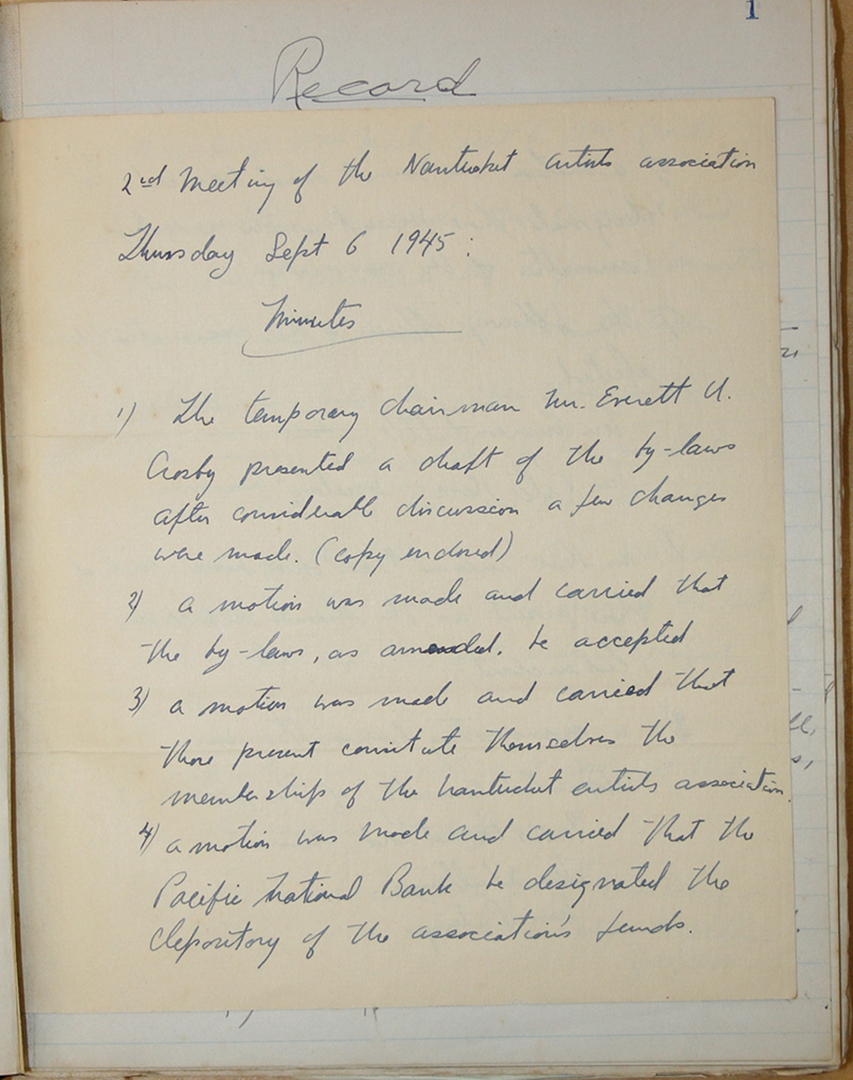 1
Record
2nd Meeting of the Nantucket artists association
Thursday Sept 6 1945:
Minutes
1) The temporary chairman Mr. Everett U.
Crosby presented a draft of the by-laws
after considerable discussion a few changes
were made. (copy enclosed)
2) a motion was made and carried that
the by-laws, as amended, be accepted
3) a motion was made and carried that
those present constitute themselves the
membership of the Nantucket artists association.
4) a motion was made and carried that the
Pacific National Bank be designated the
depository of the association's funds.